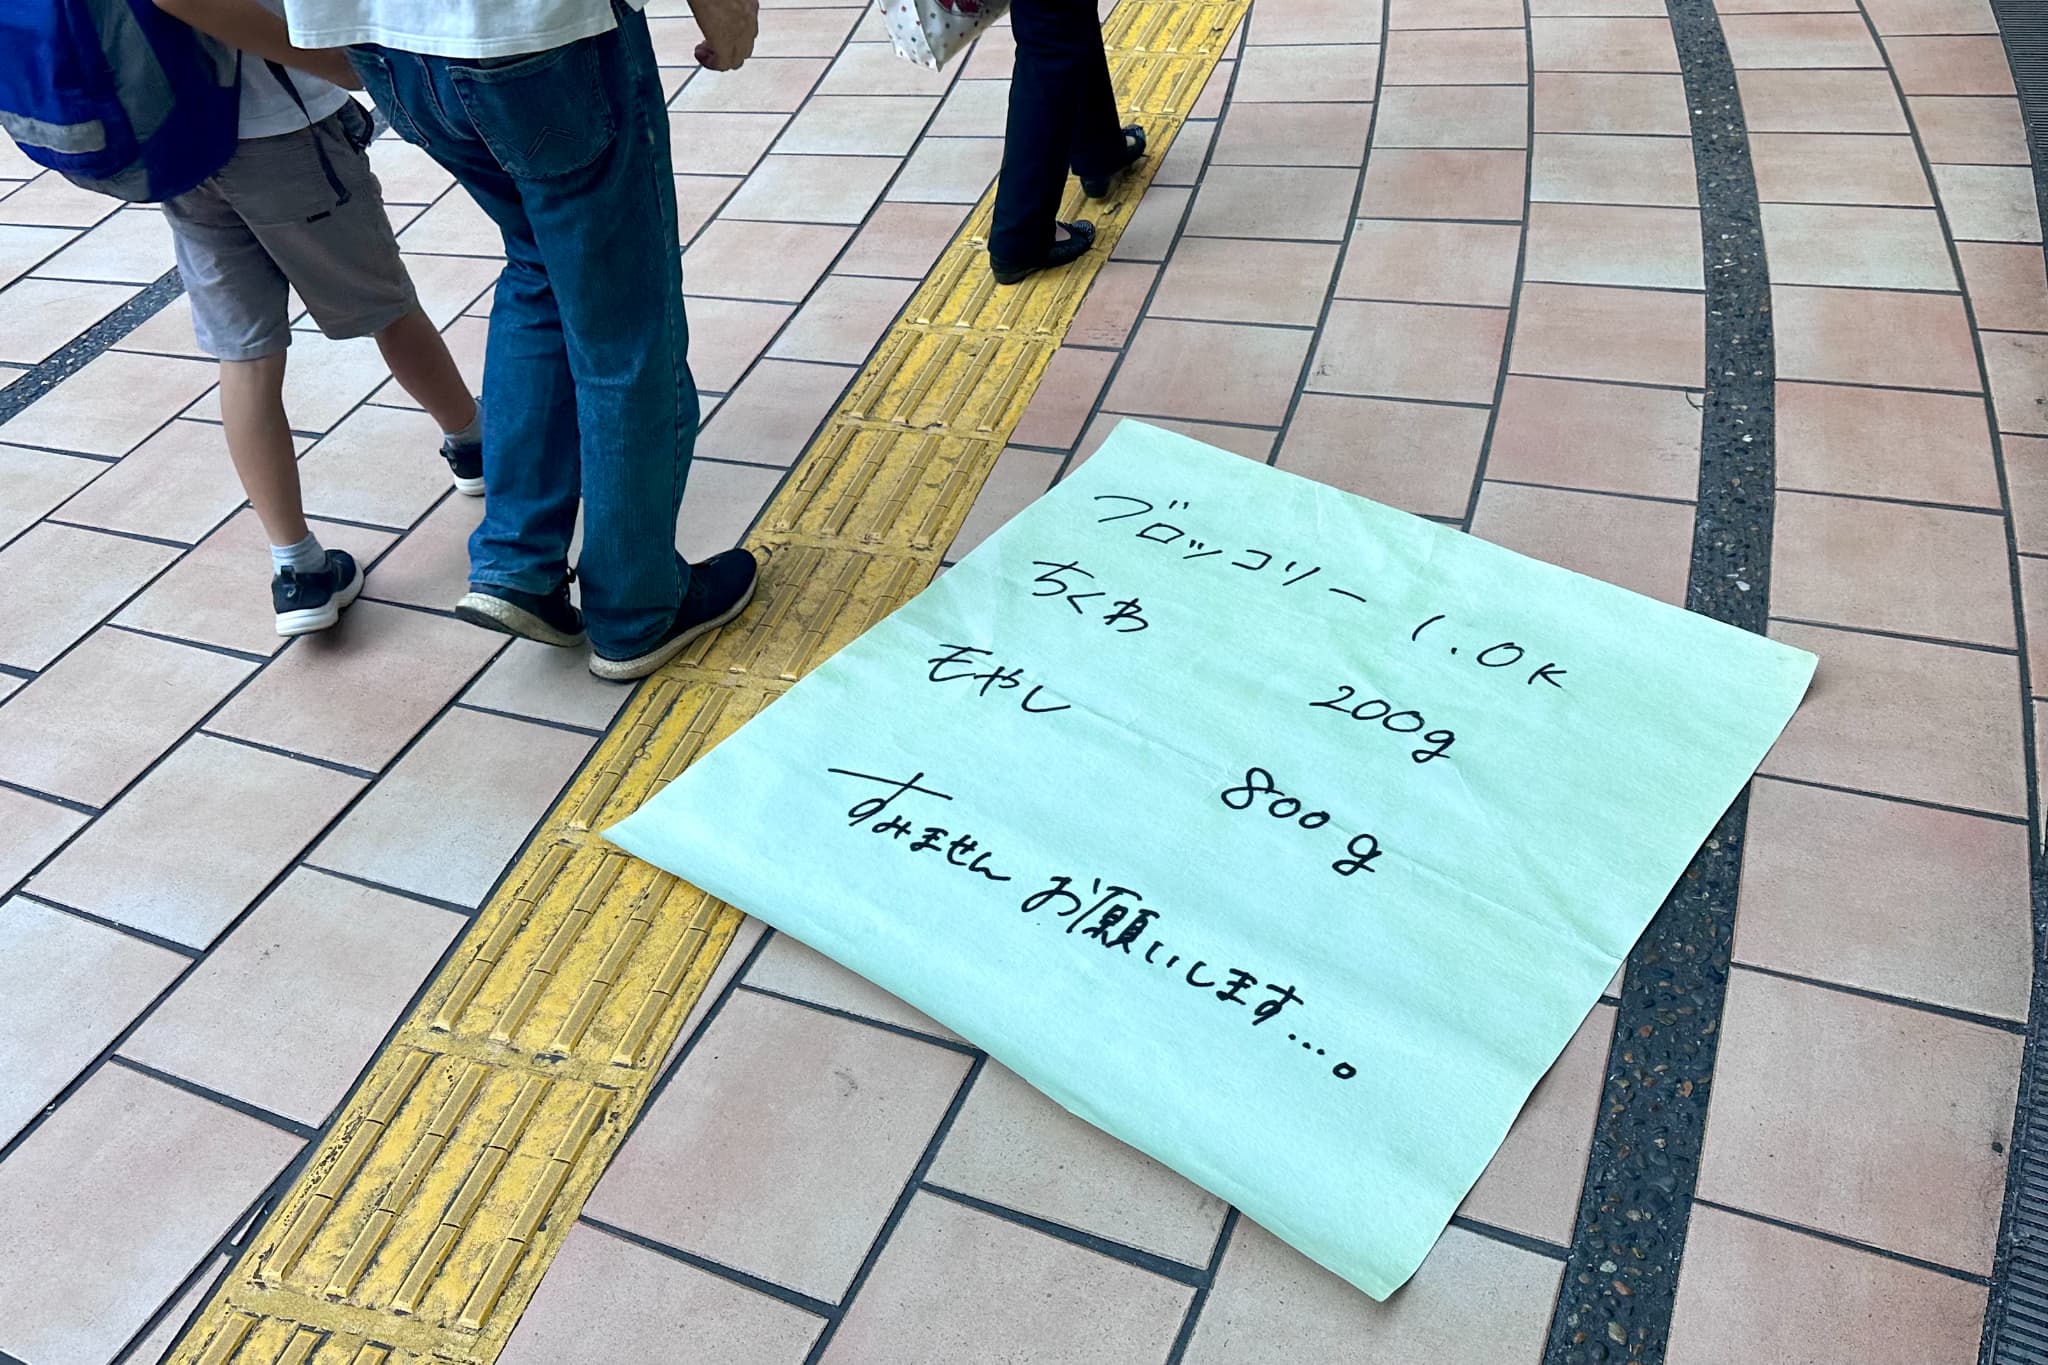 ブロッコリー 1.0K
ちくわ 200g
もやし 800g
すみません お願いします...。